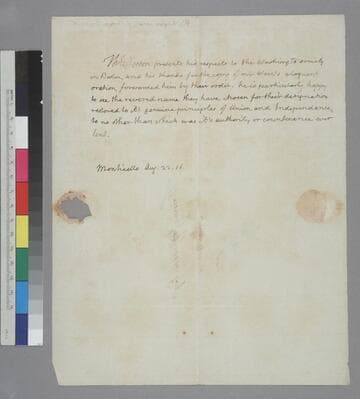 Th: Jefferson presents his respects to the Washington society
in Boston, and his thanks for the copy of mr
oration forwarded him by their order. he is particularly happy
to see the revered name they have chosen for their designation
restored to it's genuine principles of Union and Independence,
to no other than which was it's authority or countenance ever
lent.
Monticello Aug. 22. 16.